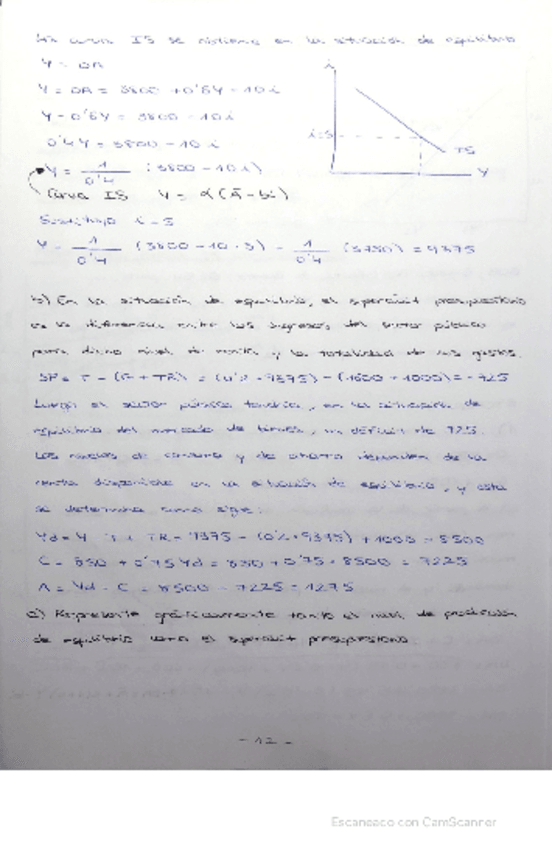 La curva IS se obtiene en la situación de equilibrio
Y = DA
Y = DA = 3800 + 0'6Y - 10i
Y - 0'6Y = 3800 - 10i
0'4Y = 3800 - 10i
Y = 1/0'4 (3800 - 10i)
Curva IS Y = α(Ā - bi)
Sustituyo i = 5
Y = 1/0'4 (3800 - 10·5) = 1/0'4 (3750) = 9375
i
i=5
IS
Y
b) En la situación de equilibrio, el superávit presupuestario
es la diferencia entre los ingresos del sector público
para dicho nivel de renta y la totalidad de sus gastos.
SP = T - (G + TR) = (0'2 · 9375) - (1600 + 1000) = -725
Luego el sector público tendría, en la situación de
equilibrio del mercado de bienes, un déficit de 725.
Los niveles de consumo y de ahorro dependen de la
renta disponible en la situación de equilibrio, y esta
se determina como sigue:
Yd = Y - T + TR = 9375 - (0'2 · 9375) + 1000 = 8500
C = 850 + 0'75Yd = 850 + 0'75 · 8500 = 7225
A = Yd - C = 8500 - 7225 = 1275
c) Represente gráficamente tanto el nivel de producción
de equilibrio como el superávit presupuestario
- 12 -
Escaneado con CamScanner